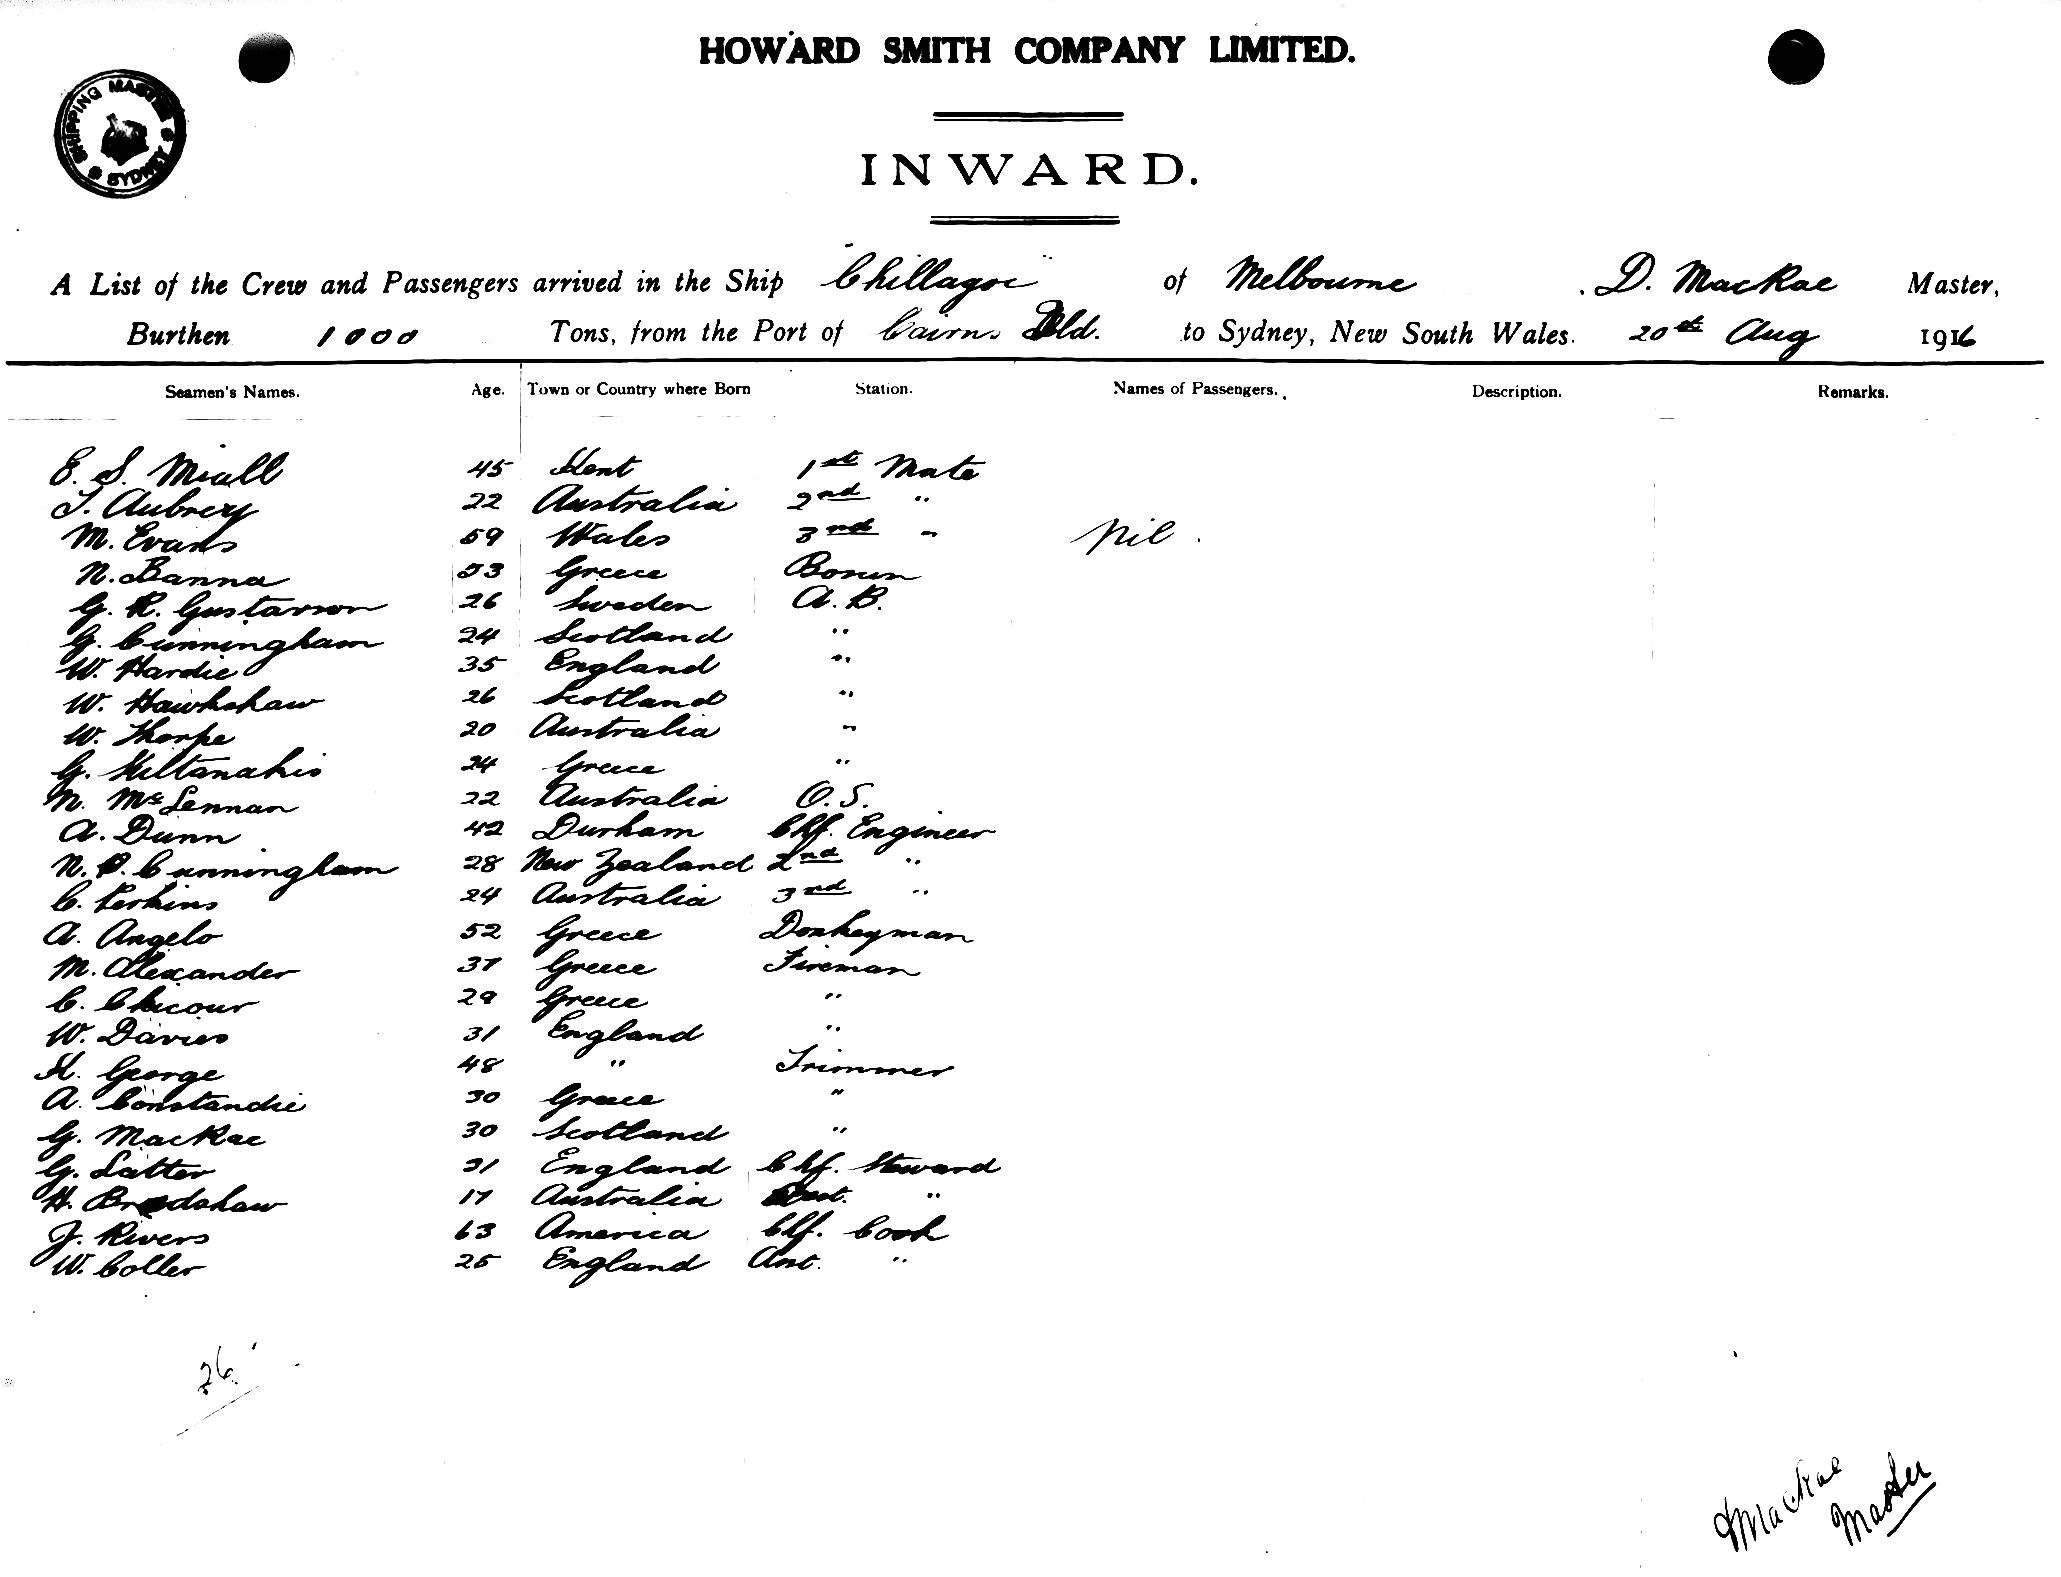 HOWARD SMITH COMPANY LIMITED.
SHIPPING MASTER SYDNEY
INWARD.
A List of the Crew and Passengers arrived in the Ship Chillagoe of Melbourne . D. MacRae Master,
Burthen 1000 Tons, from the Port of Cairns Qld. to Sydney, New South Wales. 20th Aug 1916
Seamen's Names. Age. Town or Country where Born Station. Names of Passengers. Description. Remarks.
E. S. Miall 45 Kent 1st Mate
T. Aubrey 22 Australia 2nd "
M. Evans 59 Wales 3rd " Nil.
N. Banna 53 Greece Bosun
G. R. Gustavson 26 Sweden A.B.
G. Cunningham 24 Scotland "
W. Hardie 35 England "
W. Hawkshaw 26 Scotland "
W. Thorpe 20 Australia "
G. Miltanakis 24 Greece "
N. McLennan 22 Australia O.S.
A. Dunn 42 Durham Chf. Engineer
N. P. Cunningham 28 New Zealand 2nd "
C. Perkins 24 Australia 3rd "
A. Angelo 52 Greece Donkeyman
M. Alexander 37 Greece Fireman
C. Chicour 29 Greece "
W. Davies 31 England "
H. George 48 " Trimmer
A. Constandie 30 Greece "
G. MacRae 30 Scotland "
G. Latter 31 England Chf. Steward
H. Bradshaw 17 Australia "
J. Rivers 63 America Chf. Cook
W. Coller 25 England Ast. "
26
D MacRae
Master